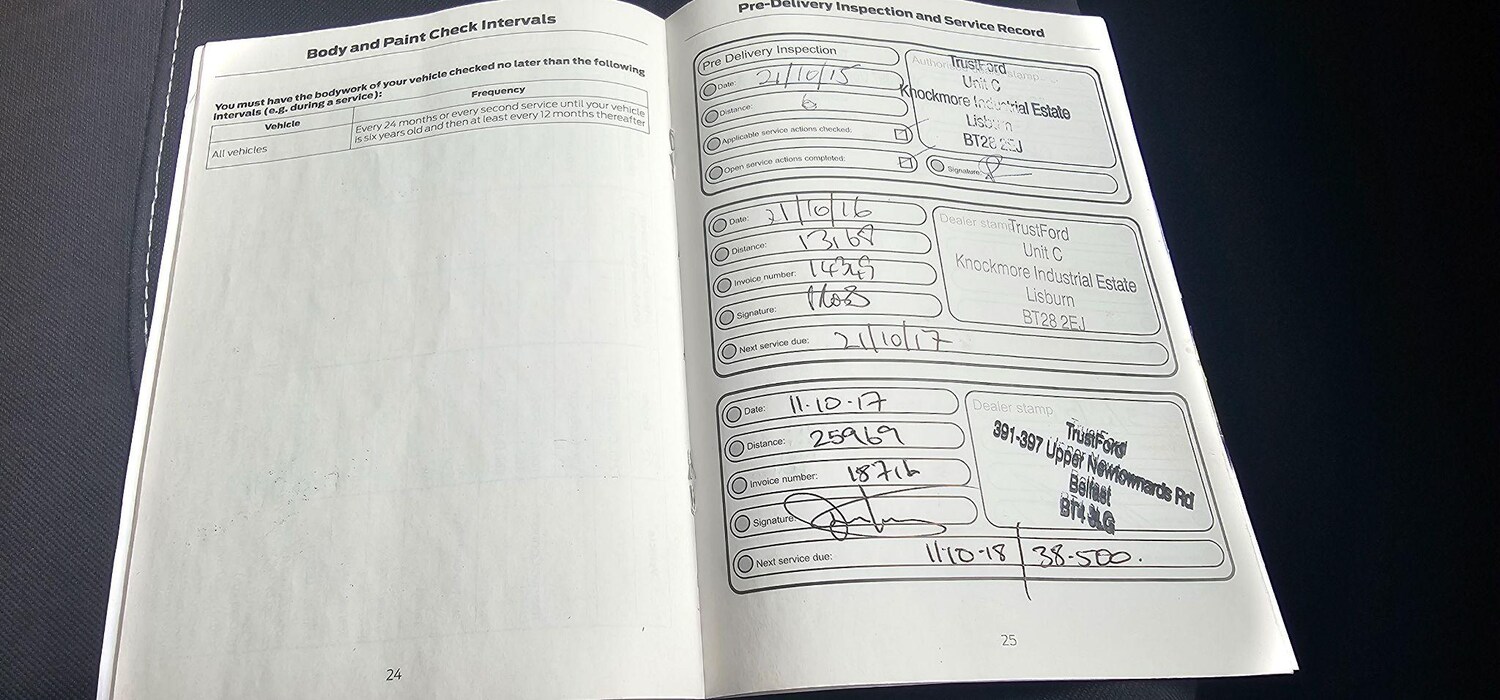 Body and Paint Check Intervals
You must have the bodywork of your vehicle checked no later than the following
intervals (e.g. during a service):
Vehicle
Frequency
All vehicles
Every 24 months or every second service until your vehicle
is six years old and then at least every 12 months thereafter
24
Pre-Delivery Inspection and Service Record
Pre Delivery Inspection
Date: 21/10/15
Distance: 6
Applicable service actions checked:
Open service actions completed:
TrustFord
Unit C
Knockmore Industrial Estate
Lisburn
BT28 2EJ
Signature:
Date: 21/10/16
Distance: 13168
Invoice number: 14349
Signature:
Next service due: 21/10/17
Dealer stamp
TrustFord
Unit C
Knockmore Industrial Estate
Lisburn
BT28 2EJ
Date: 11-10-17
Distance: 25969
Invoice number: 18716
Signature:
Next service due: 11-10-18 38-500.
Dealer stamp
TrustFord
391-397 Upper Newtownards Rd
Belfast
25